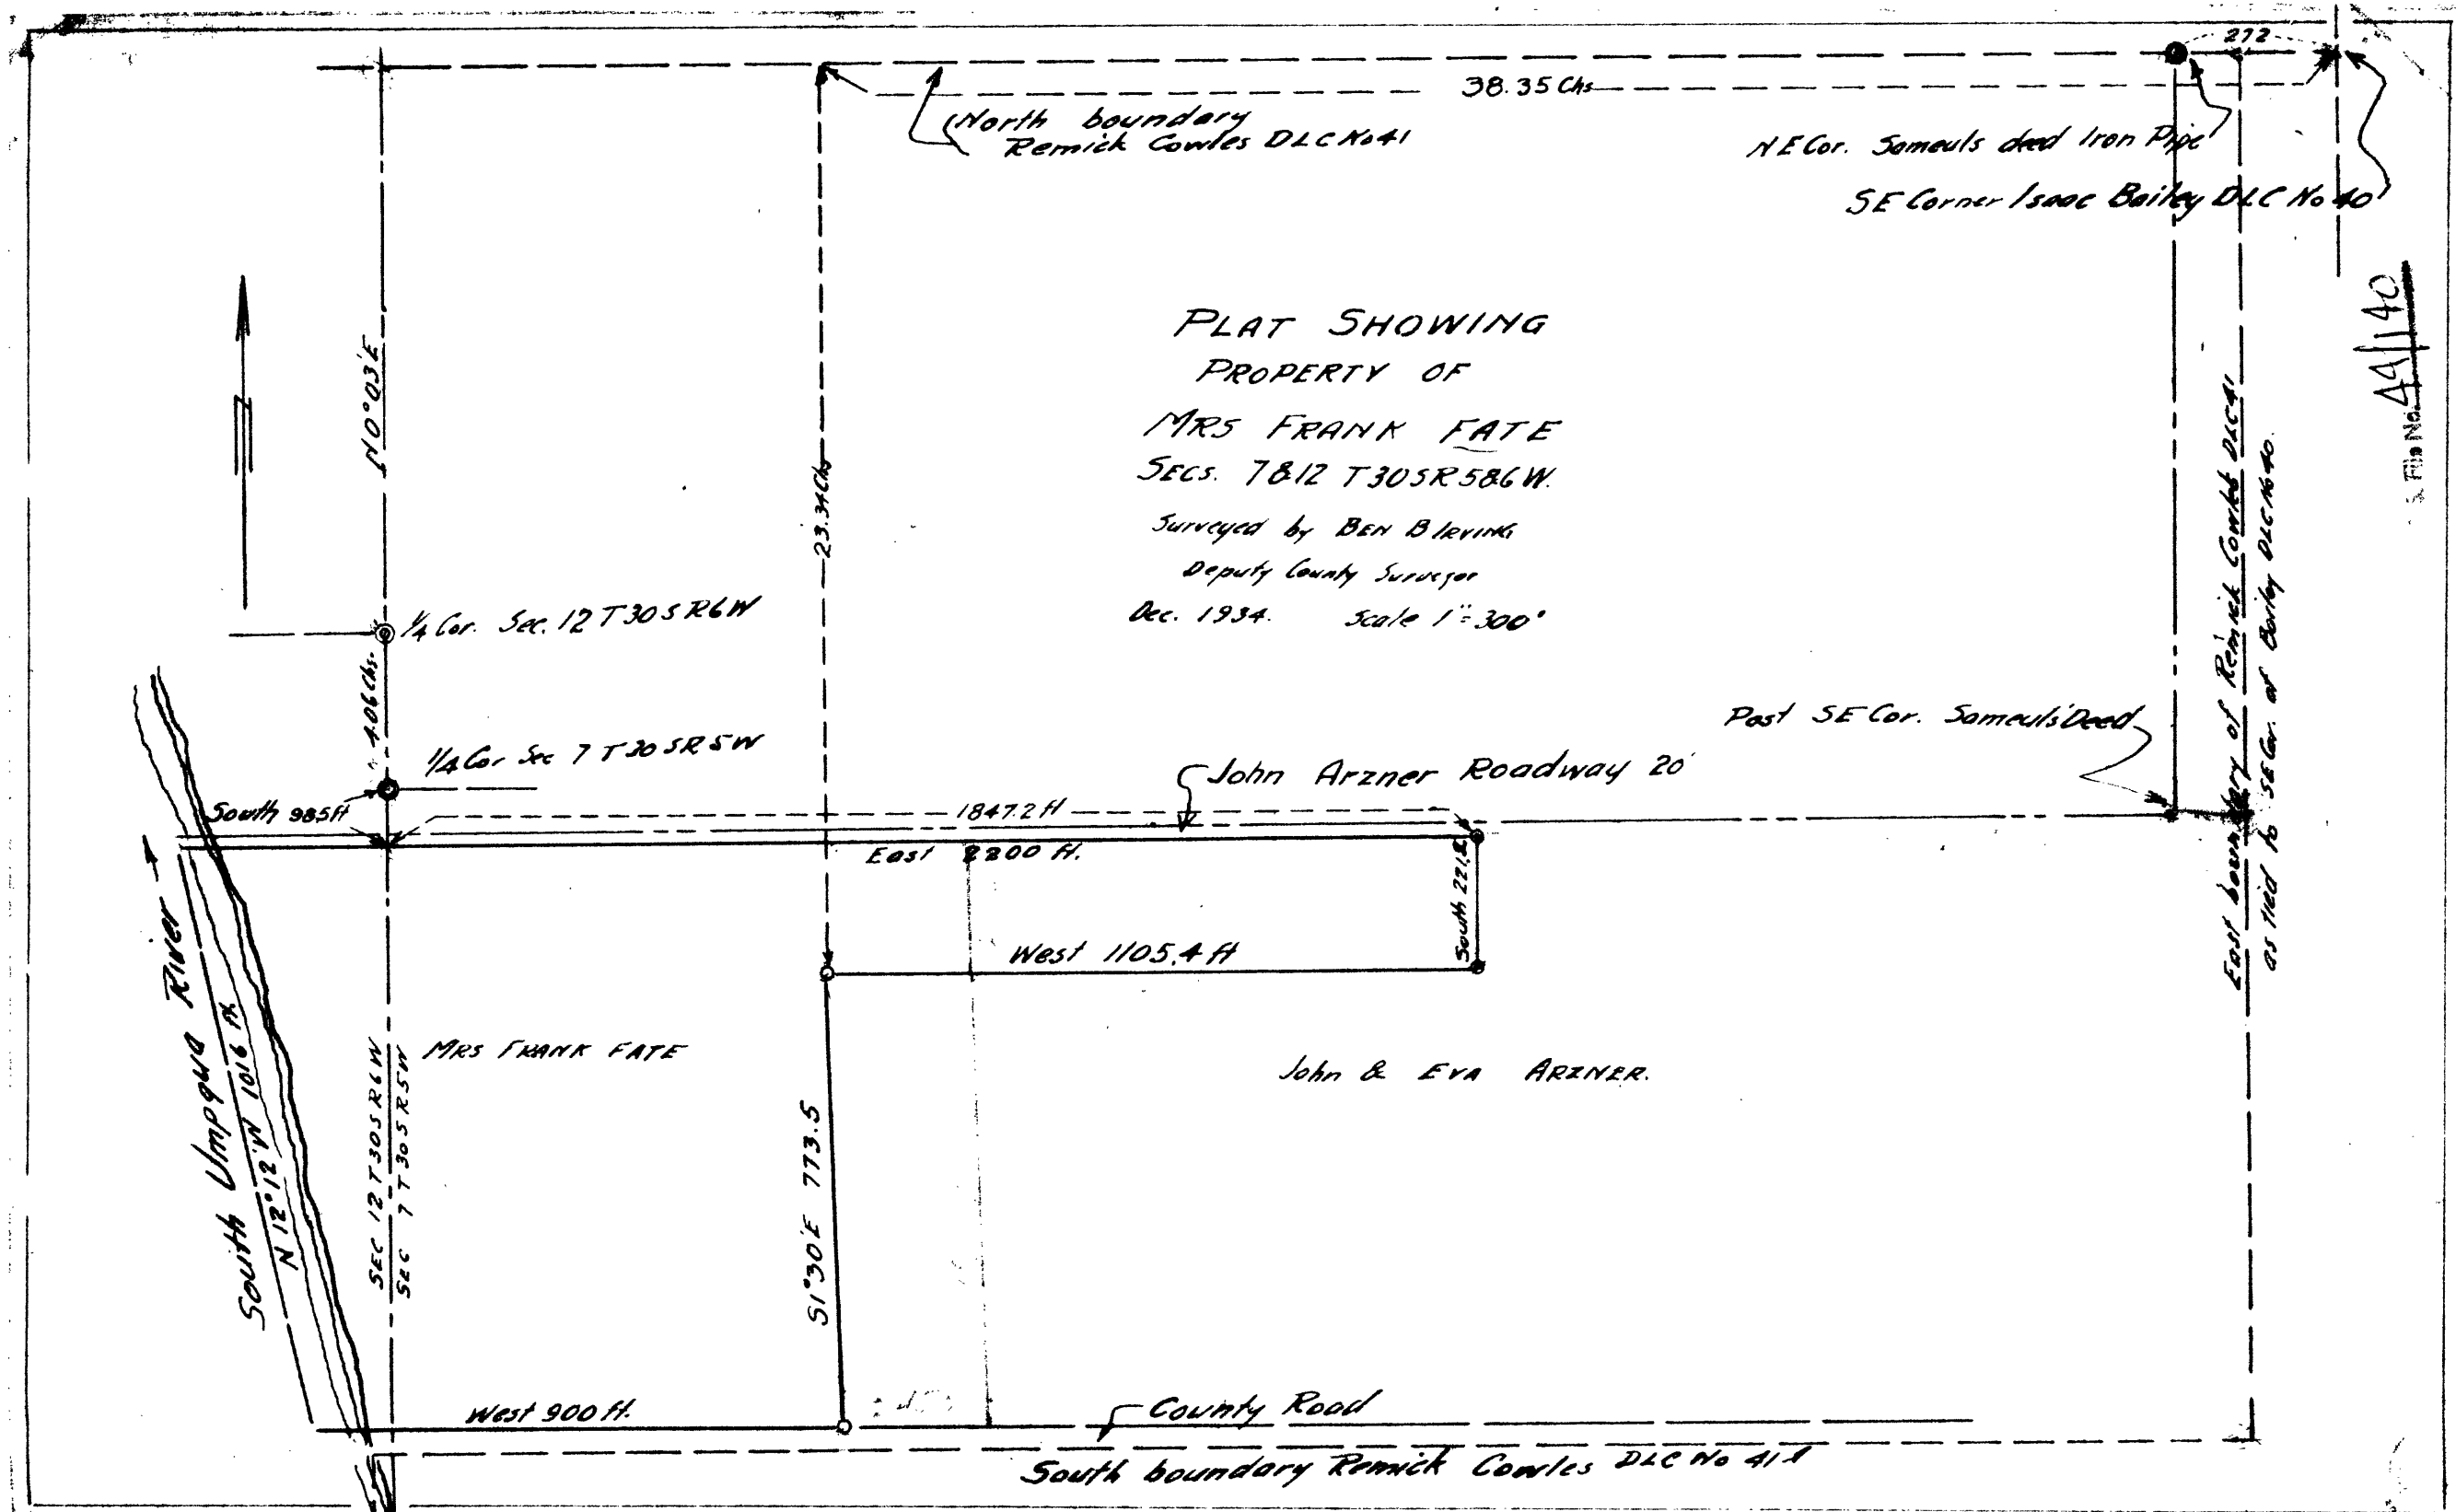 272
38.35 Chs
North boundary
Remick Cowles DLC No 41
NE Cor. Sameuls deed Iron Pipe
SE Corner Isaac Bailey DLC No 40
PLAT SHOWING
PROPERTY OF
MRS FRANK FATE
SECS. 7&12 T30SR5&6W.
Surveyed by BEN B IRVING
Deputy County Surveyor
Dec. 1934. Scale 1"=300'
File No.
N0°03'E
23.34 Chs
1/4 Cor. Sec. 12 T30S R6W
4.06 Chs.
1/4 Cor Sec 7 T30SR5W
South 985 ft
Post SE Cor. Sameuls' Deed
John Arzner Roadway 20'
1847.2 ft
East 2200 ft.
South 221.2
West 1105.4 ft
East boundary of Remick Cowles DLC 41
as tied to SE Cor. of Bailey DLC No 40.
South Umpqua River
N 12°12'W 1016 ft
SEC 12 T30SR6W
SEC 7 T30SR5W
MRS FRANK FATE
John & EVA ARZNER.
S1°30'E 773.5
West 900 ft.
County Road
South boundary Remick Cowles DLC No 41